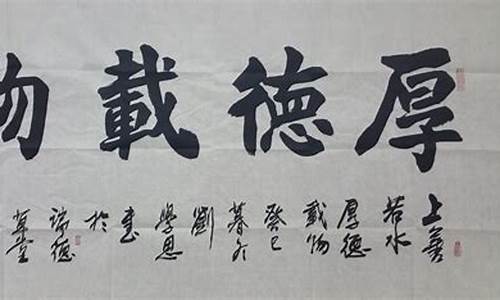 厚德載物
上善
若水
厚德
載物
癸巳
暮冬
劉
學思
書
於
瑞德
草堂